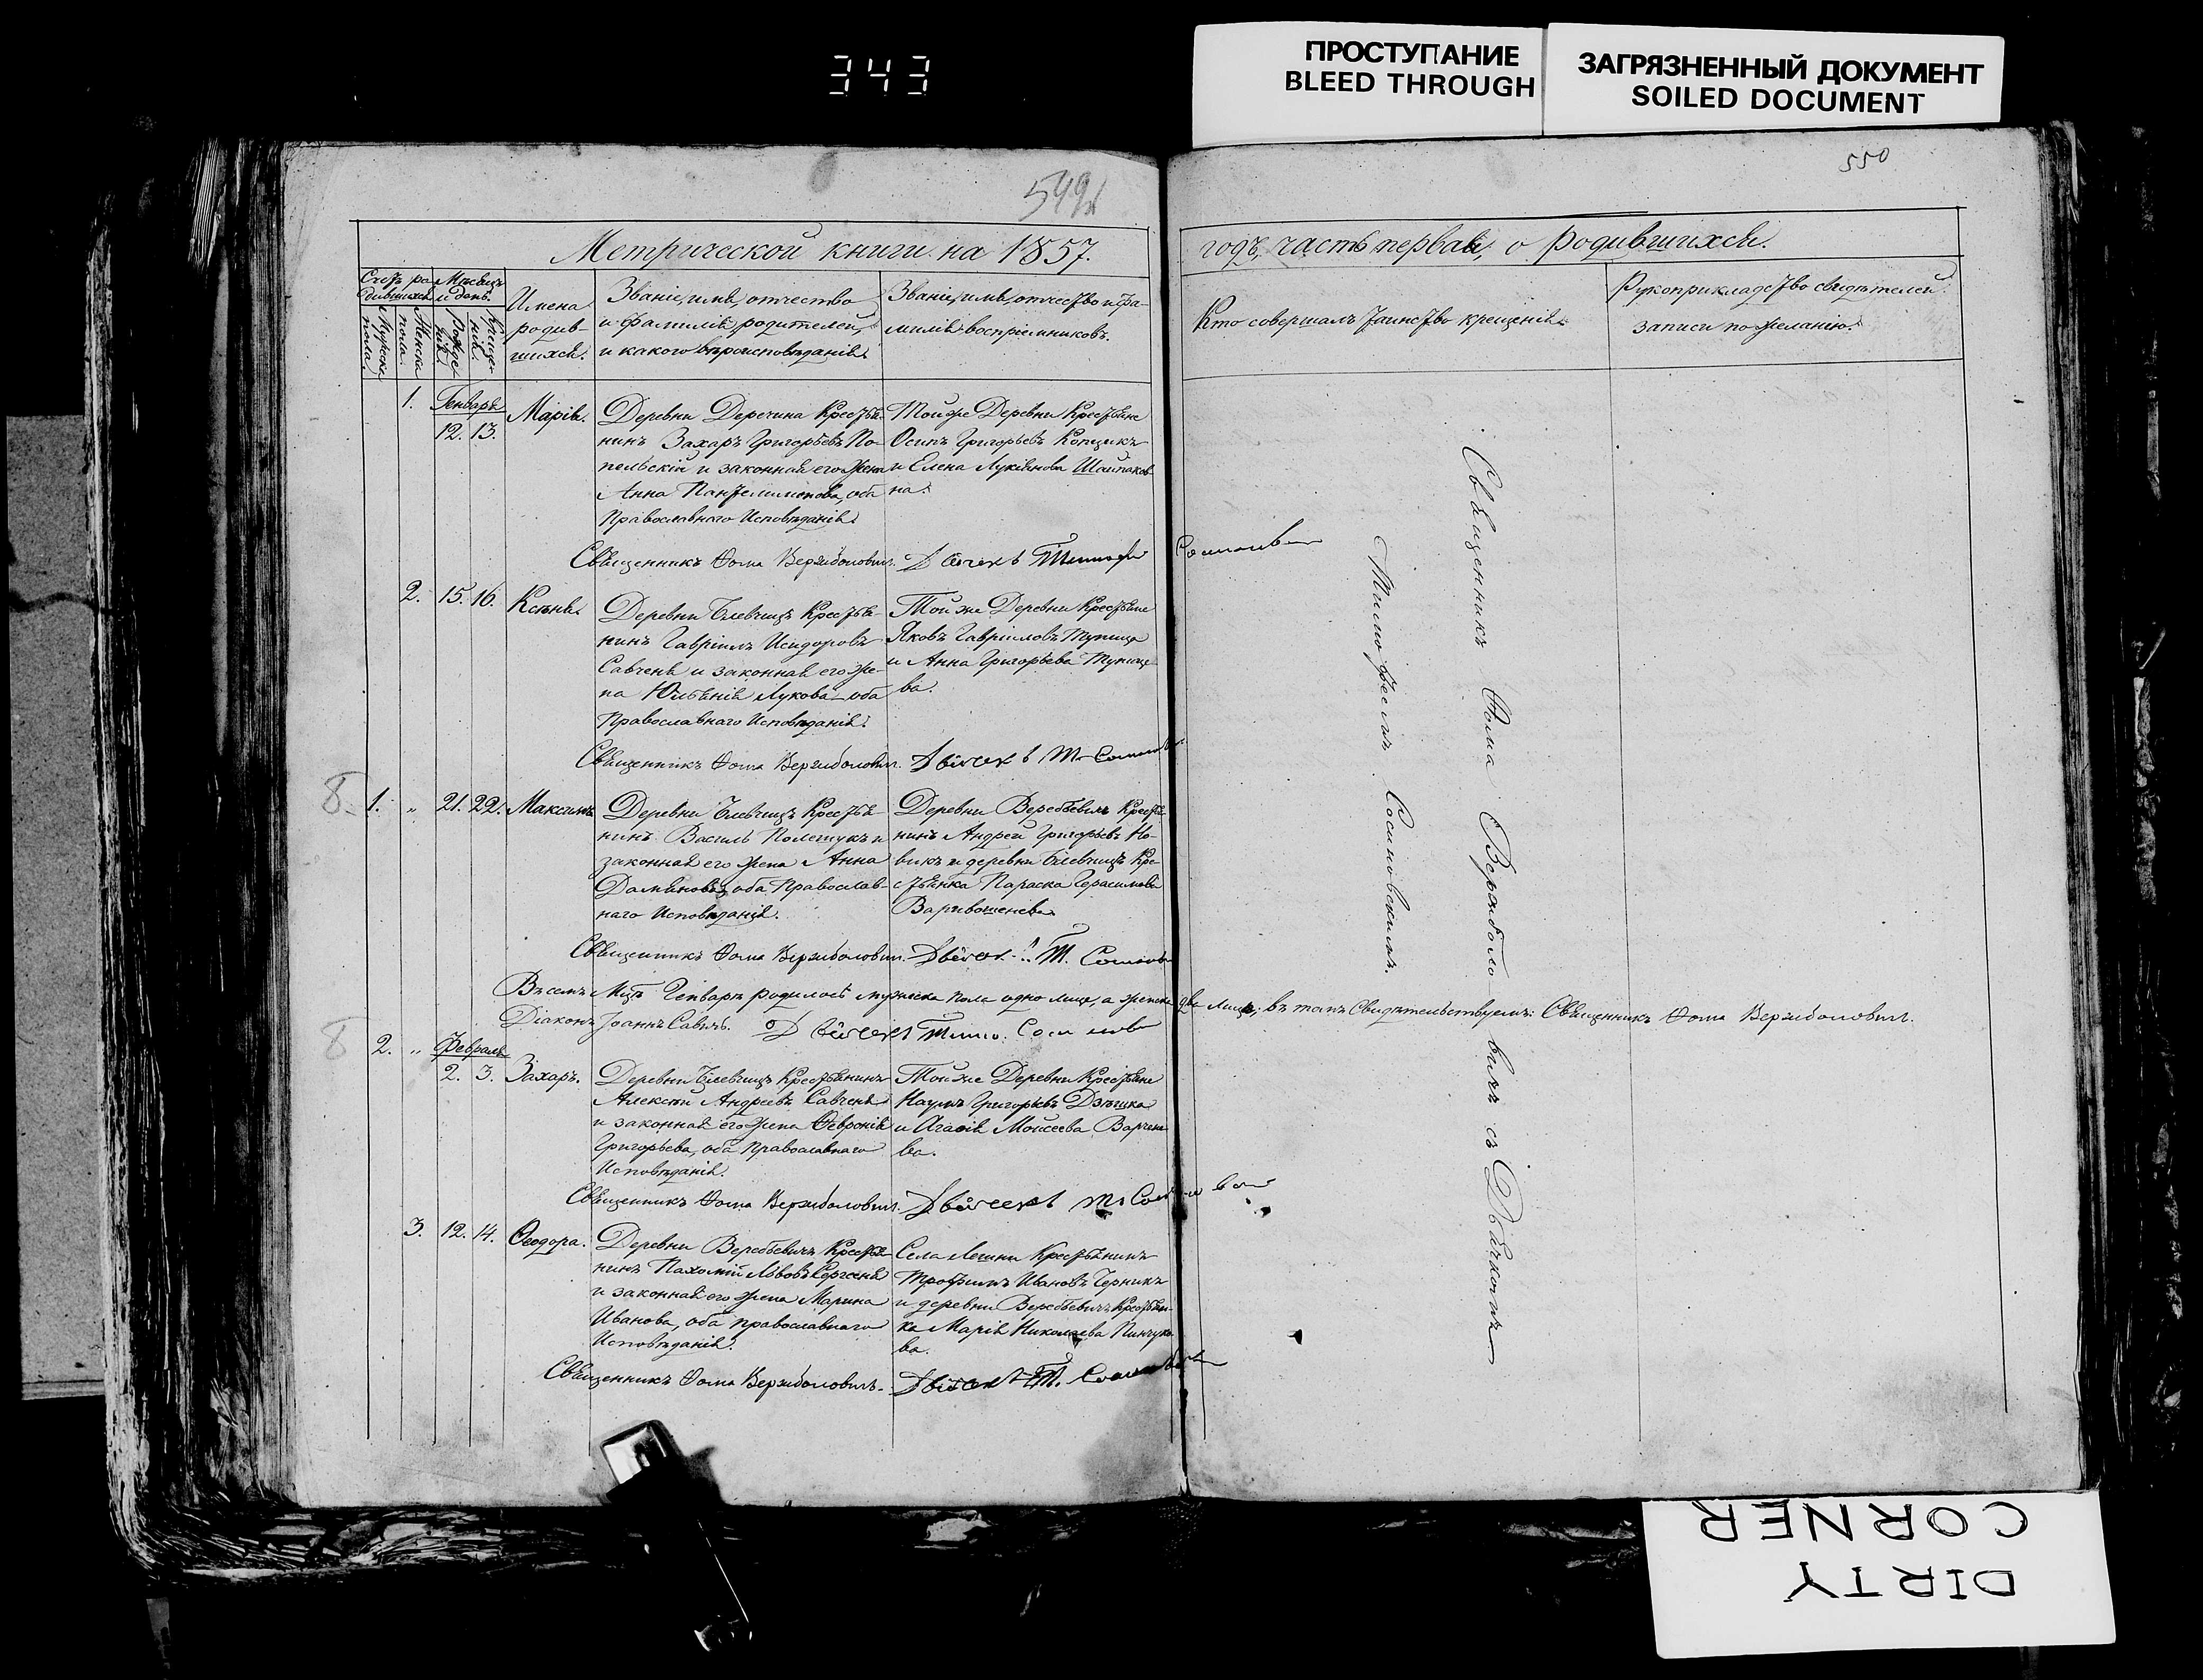 343
ПРОСТУПАНИЕ
BLEED THROUGH
ЗАГРЯЗНЕННЫЙ ДОКУМЕНТ
SOILED DOCUMENT
549
550
Метрической книги на 1857.
годъ, часть первая, о родившихся.
Счетъ родившихся
Мѣсяцъ и день.
Мужска пола.
Женска пола.
Рожденія
Крещенія
Имена
родив-
шихся.
Званіе, имя, отчество
и фамилія родителей,
и какого вѣроисповѣданія.
Званіе, имя, отчество и фа-
милія воспріемниковъ.
Кто совершалъ таинство крещенія.
Рукоприкладство свидѣтелей
записи по желанію.
1.
Генваря
12. 13.
Марія.
Деревни Деречина Крестья-
нинъ Захаръ Григорьевъ По-
пельскій и законная его жена
Анна Пантелимонова, оба
Православнаго Исповѣданія.
Той же Деревни Крестьяне
Осипъ Григорьевъ
и Елена Лукіянова
на.
Священникъ Ѳома Вержболовичъ.
2. 15. 16. Ксенія.
Деревни Блевчицъ Крестья-
нинъ Гавріилъ Исидоровъ
Савченя и законная его же-
на Юльянія Лукова оба
Православнаго Исповѣданія.
Той же Деревни Крестьяне
Яковъ Гавріиловъ Тупица
и Анна Григорьева Тупице-
ва.
Священникъ Ѳома Вержболовичъ.
8.
1. " 21. 22. Максимъ
Деревни Блевчицъ Крестья-
нинъ Василь Полещукъ и
законная его жена Анна
Дамьянова, оба Православ-
наго Исповѣданія.
Деревни Веребьевичъ Крестья-
нинъ Андрей Григорьевъ Но-
викъ и деревни Блевчицъ Кре-
стьянка Параска Герасимова
Священникъ Ѳома Вержболовичъ.
Въ семъ Мцѣ Генварѣ родилось мужеска пола одно лице, а женска два лица, въ томъ свидѣтельствуемъ: Священникъ Ѳома Вержболовичъ.
Діаконъ Іоаннъ Савичъ.
8
2. " Февраля
2. 3. Захаръ.
Деревни Блевчицъ Крестьянинъ
Алексѣй Андреевъ Савченя
и законная его жена Ѳевронія
Григорьева, оба Православнаго
Исповѣданія.
Той же Деревни Крестьяне
Наумъ Григорьевъ
и Агаѳія Моисеева
ва.
Священникъ Ѳома Вержболовичъ.
3. 12. 14. Ѳеодора.
Деревни Веребьевичъ Крестья-
нинъ Пахомій Львовъ Сергеня
и законная его жена Марина
Иванова, оба православнаго
Исповѣданія.
Села Крестьянинъ
Трофимъ Ивановъ Черникъ
и деревни Веребьевичъ Крестьян-
ка Марія Николаева Пинчуко-
ва.
Священникъ Ѳома Вержболовичъ.
Священникъ Ѳома Вержболовичъ съ Дьячкомъ
Тимофеемъ Сосиновскимъ.
DIRTY
CORNER